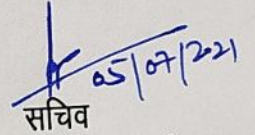 05/07/2021
सचिव